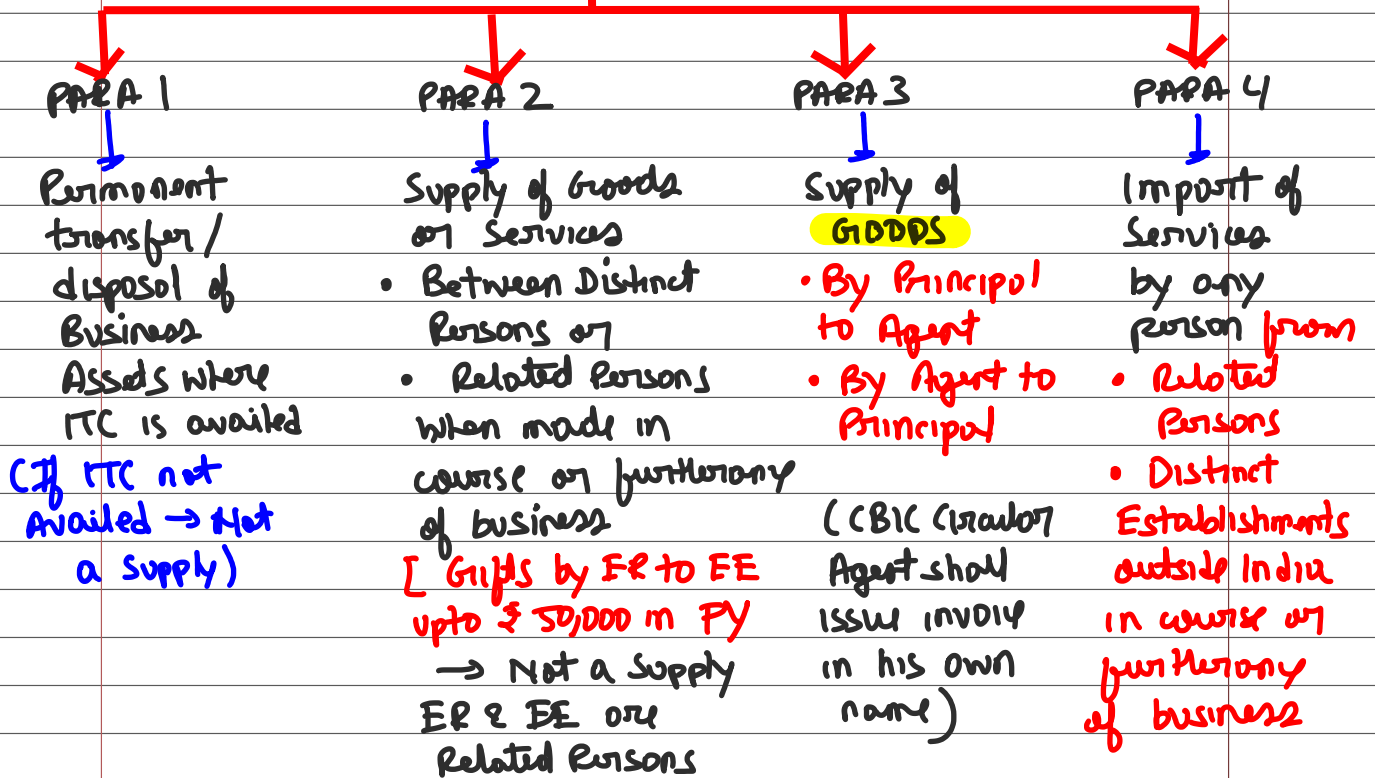 PARA 1
Permanent
transfer/
disposal of
Business
Assets where
ITC is availed
(If ITC not
Availed → Not
a Supply)
PARA 2
Supply of Goods
or Services
• Between Distinct
Persons or
• Related Persons
when made in
course or furtherany
of business
[ Gifts by ER to EE
upto ₹ 50,000 in FY
→ Not a Supply
ER & EE are
Related Persons
PARA 3
Supply of
GOODS
• By Principal
to Agent
• By Agent to
Principal
(CBIC Circular
Agent shall
issue invoie
in his own
name)
PARA 4
Import of
Services
by any
person from
• Related
Persons
• Distinct
Establishments
outside India
in course or
furtherany
of business